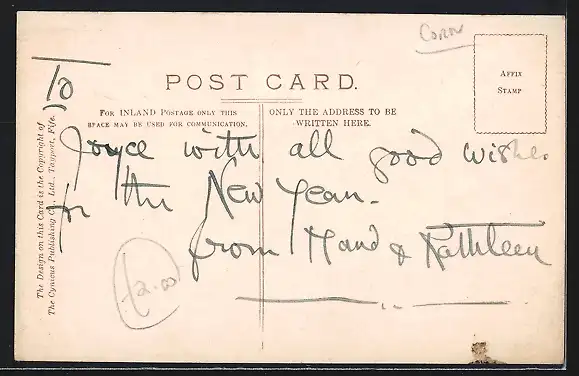 Corn
POST CARD.
AFFIX
STAMP
FOR INLAND POSTAGE ONLY THIS
SPACE MAY BE USED FOR COMMUNICATION.
ONLY THE ADDRESS TO BE
WRITTEN HERE.
The Design on this Card is the Copyright of
The Cynicus Publishing Co., Ltd., Tayport, Fife.
To
Joyce with all good wishes
for the New Year.
from Maud & Kathleen
£2.00